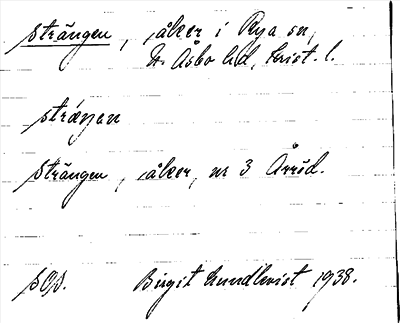 Strängen, åker i Rya sn,
N. Åsbo hd, Krist. l.
stráŋan
Strängen, åker, nr 3 Årröd.
SOS. Birgit Lundkvist 1938.